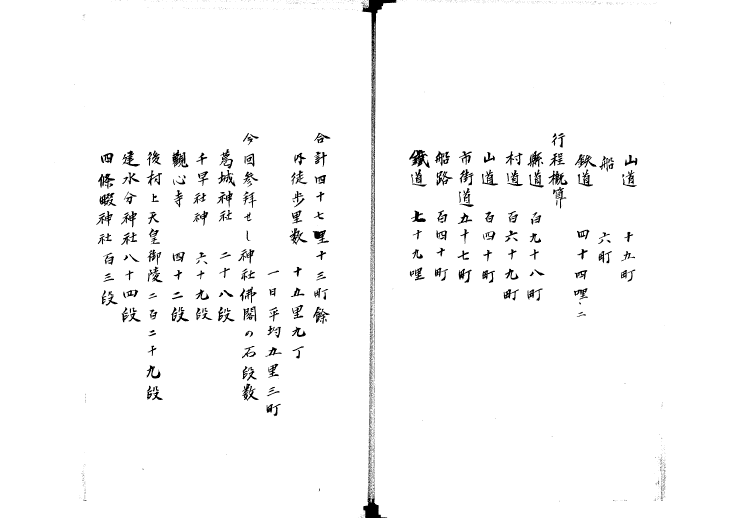 山道　十五町
船　六町
鉄道　四十四哩、二
行程概算
縣道　百九十八町
村道　百六十九町
山道　百四十町
市街道　五十七町
船路　百四十町
鐵道　七十九哩
合計四十七里十三町餘
内徒歩里数　十五里九丁
一日平均五里三町
今回参拜せし神社佛閣の石段数
葛城神社　二十八段
千早社神　六十九段
觀心寺　四十二段
後村上天皇御陵二百二十九段
建水分神社八十四段
四條畷神社百三段